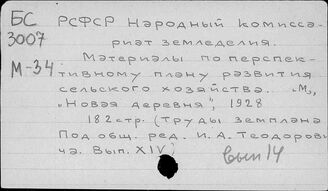 БС РСФСР Народный комисса-
3007 риат земледелия.
М-34 Материалы по перспек-
тивному плану развития
сельского хозяйства. „М",
„Новая деревня", 1928
182 стр. (Труды земплана
Под общ. ред. И. А. Теодорови
ча. Вып. XIV)
вып 14